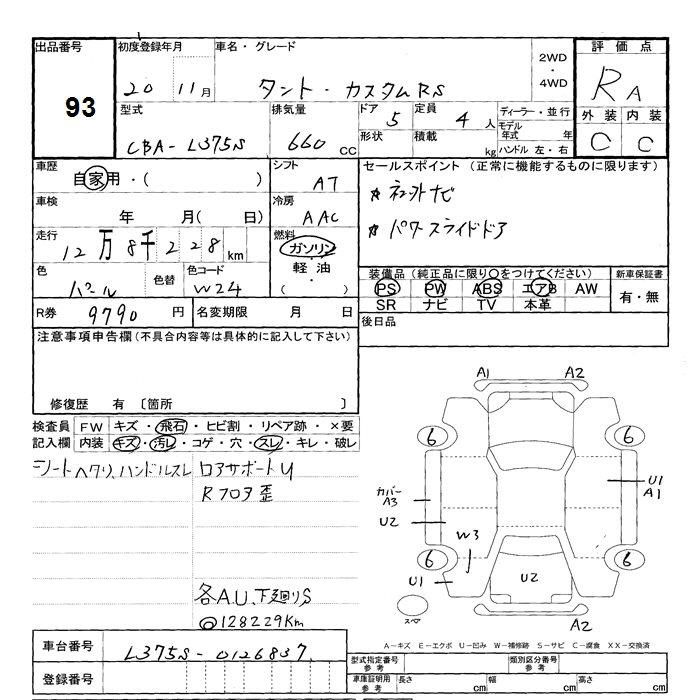 出品番号
93
初度登録年月
20 11月
車名・グレード
タント・カスタムRS
2WD
・
4WD
評価点
RA
外装 内装
C C
型式
CBA-L375S
排気量
660 CC
ドア
5
形状
定員
4 人
積載
kg
ディーラー・並行
モデル年式 年
ハンドル 左・右
車歴
自家用・( )
シフト
AT
セールスポイント(正常に機能するものに限ります)
パワースライドドア
車検
年 月( 日)
冷房
AAC
走行
12万8千228km
燃料
ガソリン
・
軽油
・
( )
色
パール
色替
色コード
W24
装備品(純正品に限り○をつけてください)
PS PW ABS エアB AW
SR ナビ TV 本革
新車保証書
有・無
R券 9790円
名変期限 月 日
後日品
注意事項申告欄(不具合内容等は具体的に記入して下さい)
修復歴 有 〔箇所 〕
検査員
記入欄
FW キズ・飛石・ヒビ割・リペア跡・×要
内装 キズ・汚レ・コゲ・穴・スレ・キレ・破レ
シートヘタリ、ハンドルスレ
ロアサポートU
Rフロア歪
各A.U、下廻りS
◎128229Km
A1 A2
6 6
カバー
A3
U2
U1
A1
W3
6 6
U1
U2
スペア
A2
A-キズ E-エクボ U-凹み W-補修跡 S-サビ C-腐食 XX-交換済
車台番号 L375S-0126837
登録番号
型式指定番号
参考
類別区分番号
参考
車庫証明用
参考
長さ cm 幅 cm 高さ cm